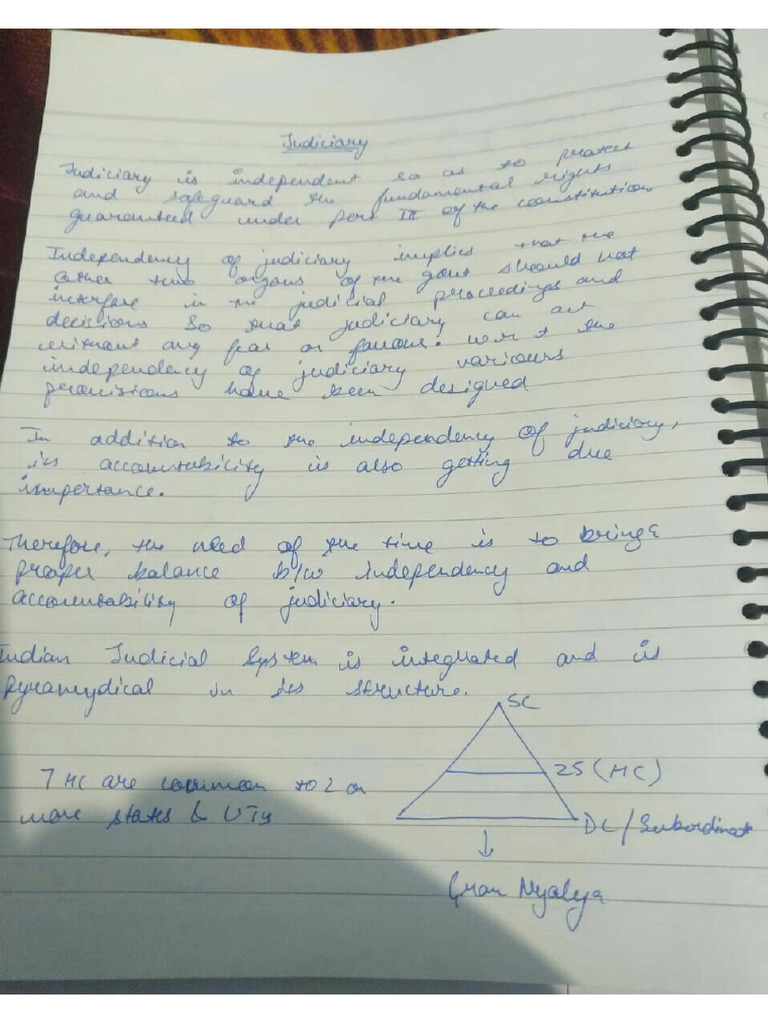 Judiciary
Judiciary is independent so as to protect
and safeguard the fundamental rights
guaranteed under part III of the constitution
Independency of judiciary implies that the
other two organs of the govt should not
interfere in the judicial proceedings and
decisions so that judiciary can act
without any fear or favour. w.r.t the
independency of judiciary various
provisions have been designed
In addition to the independency of judiciary,
its accountability is also getting due
importance.
Therefore, the need of the time is to bring
proper balance b/w independency and
accountability of judiciary.
Indian Judicial System is integrated and is
pyramydical in its structure.
SC
25 (HC)
7 HC are common to 2 or
more states & UTs
DC/Subordinat
Gram Nyalya